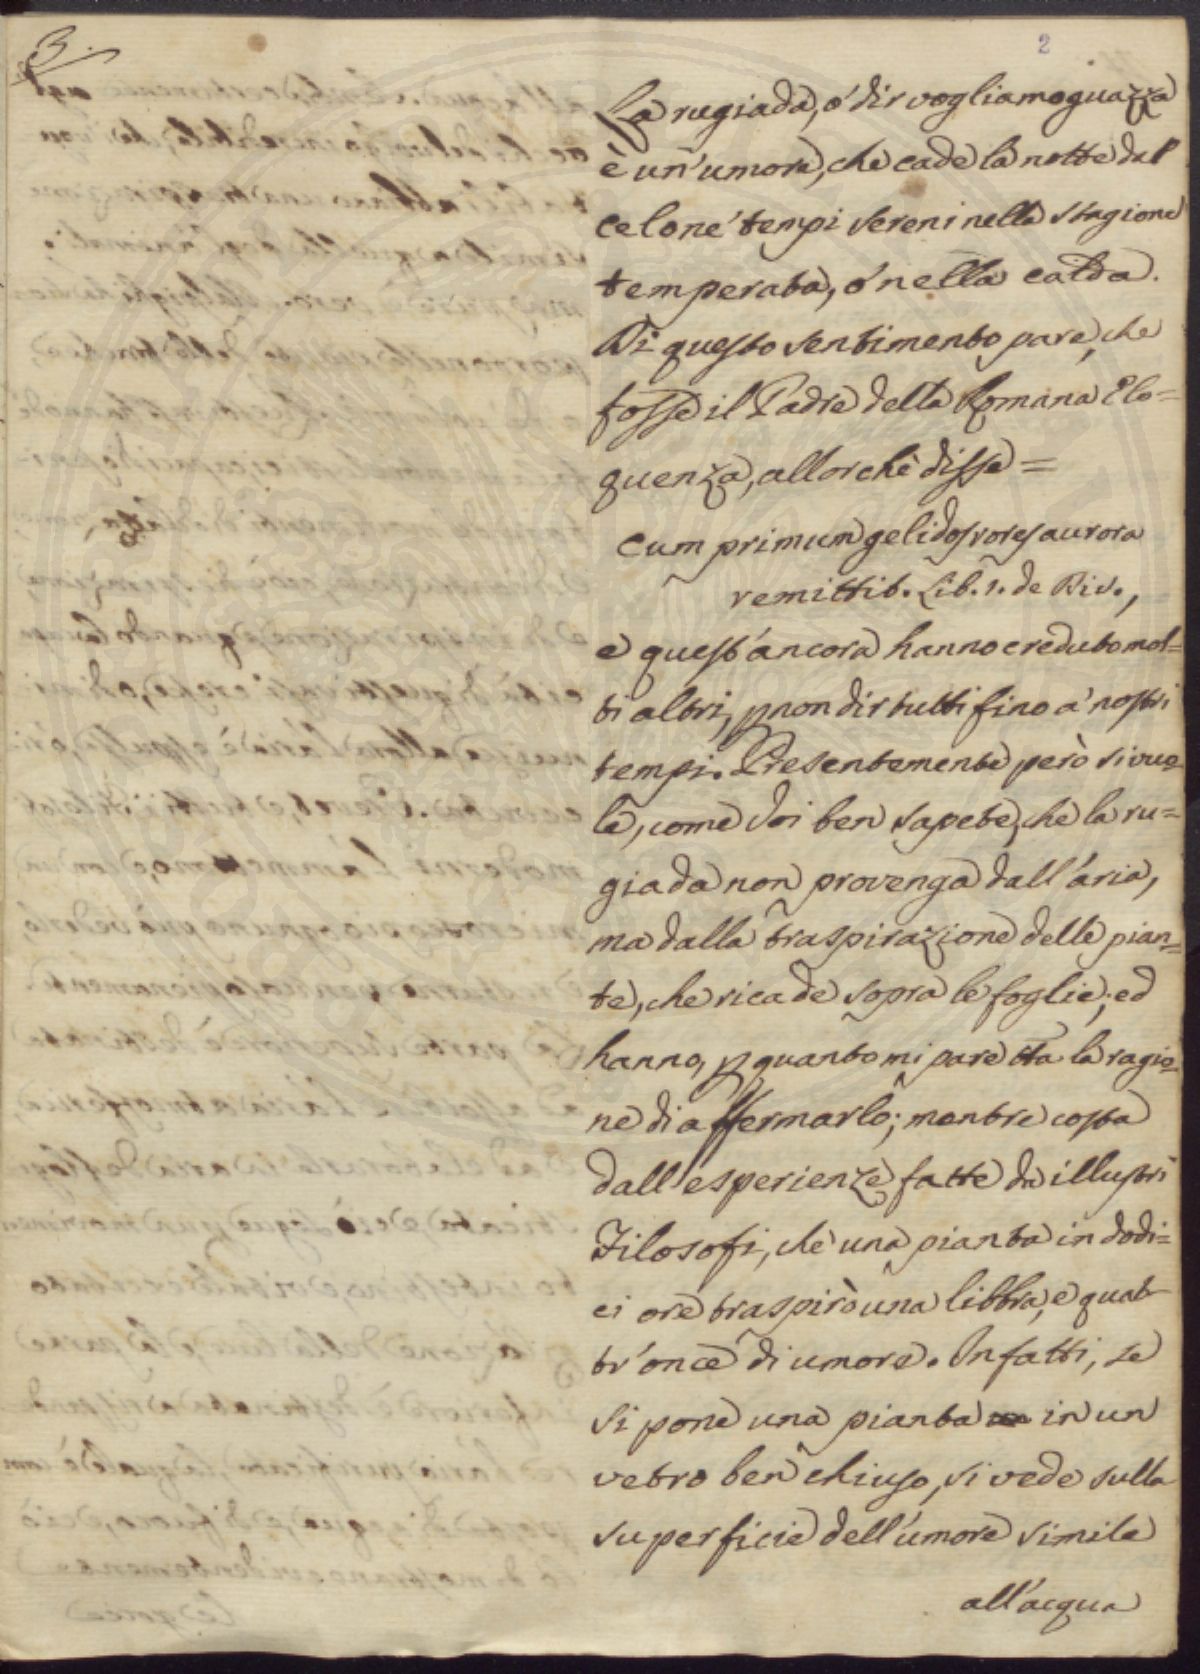 3.
2
La rugiada, ó dir vogliamo guazza
è un'umore, che cade la notte dal
celo ne' tempi sereni nella stagione
temperata, ó nella calda.
Di questo sentimento pare, che
fosse il Padre della Romana Elo=
quenza, allorchè disse =
Cum primum gelidos rores aurora
remittit. Lib. 1. de Div.,
e quest'ancora hanno creduto mol=
ti altri, p non dir tutti fino a' nostri
tempi. Presentemente però si vuo=
le, come Voi ben sapete, che la ru=
giada non provenga dall'aria,
ma dalla traspirazione delle pian=
te, che ricade sopra le foglie; ed
hanno, p quanto mi pare tta la ragio=
ne di affermarlo; mentre costa
dall'esperienze fatte da illustri
Filosofi, che una pianta in dodi=
ci ore traspirò una libbra, e quat=
tr'once di umore. Infatti, se
si pone una pianta in un
vetro ben chiuso, si vede sulla
superficie dell'umore simile
all'acqua